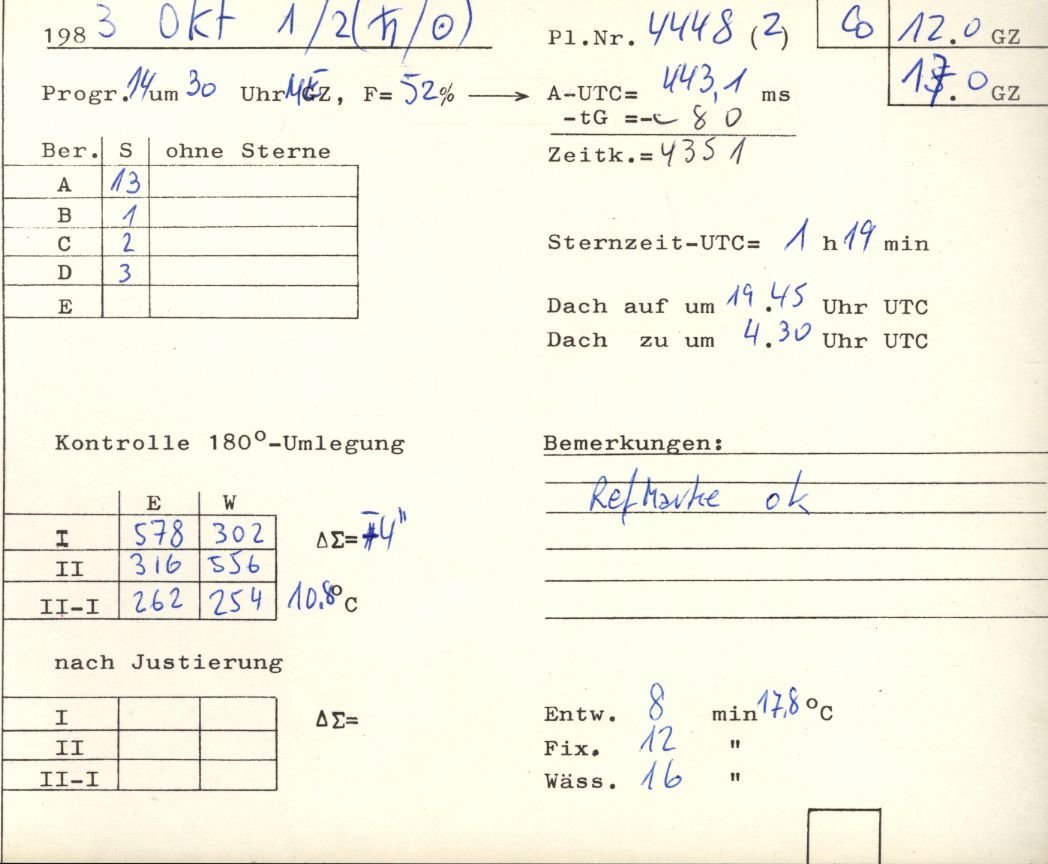 1983 Okt 1/2(♄/☉) Pl.Nr. 4448 (2) Co 12.0 GZ
13.0 GZ
Progr. 14 um 30 Uhr GZ, F= 52% → A-UTC= 443,1 ms
-tG =- 8 0
Zeitk.= 4351
Ber. S ohne Sterne
A 13
B 1
C 2
D 3
E
Sternzeit-UTC= 1 h 19 min
Dach auf um 19.45 Uhr UTC
Dach zu um 4.30 Uhr UTC
Kontrolle 180°-Umlegung
Bemerkungen:
RefMarke ok
E W
I 578 302 ΔΣ= 4"
II 316 556
II-I 262 254 10.8°C
nach Justierung
I ΔΣ=
II
II-I
Entw. 8 min 17,8 °C
Fix. 12 "
Wäss. 16 "